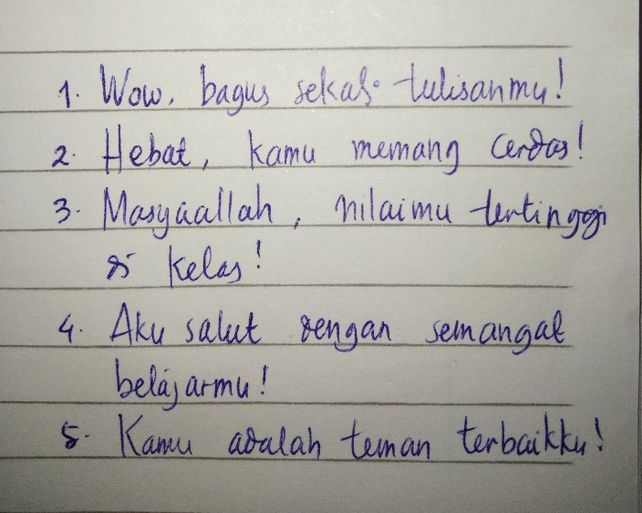 1. Wow, bagus sekali tulisanmu!
2. Hebat, kamu memang cerdas!
3. Masyaallah, nilaimu tertinggi
di kelas!
4. Aku salut dengan semangat
belajarmu!
5. Kamu adalah teman terbaikku!